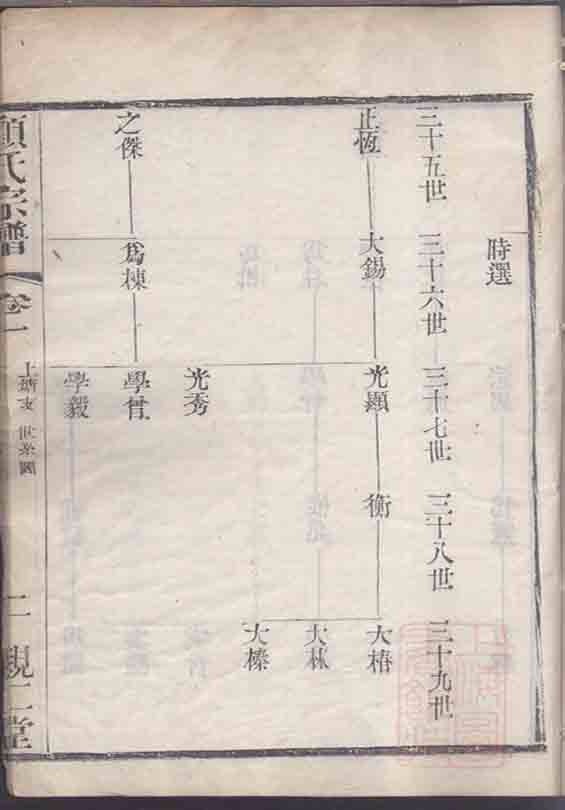 時選
三十五世 三十六世 三十七世 三十八世 三十九世
正恆 大錫 光顯 衡 大椿
大林
大榛
光秀
之傑 爲棟 學曾
學毅
顧氏宗譜 卷一 世系圖 二 親仁堂